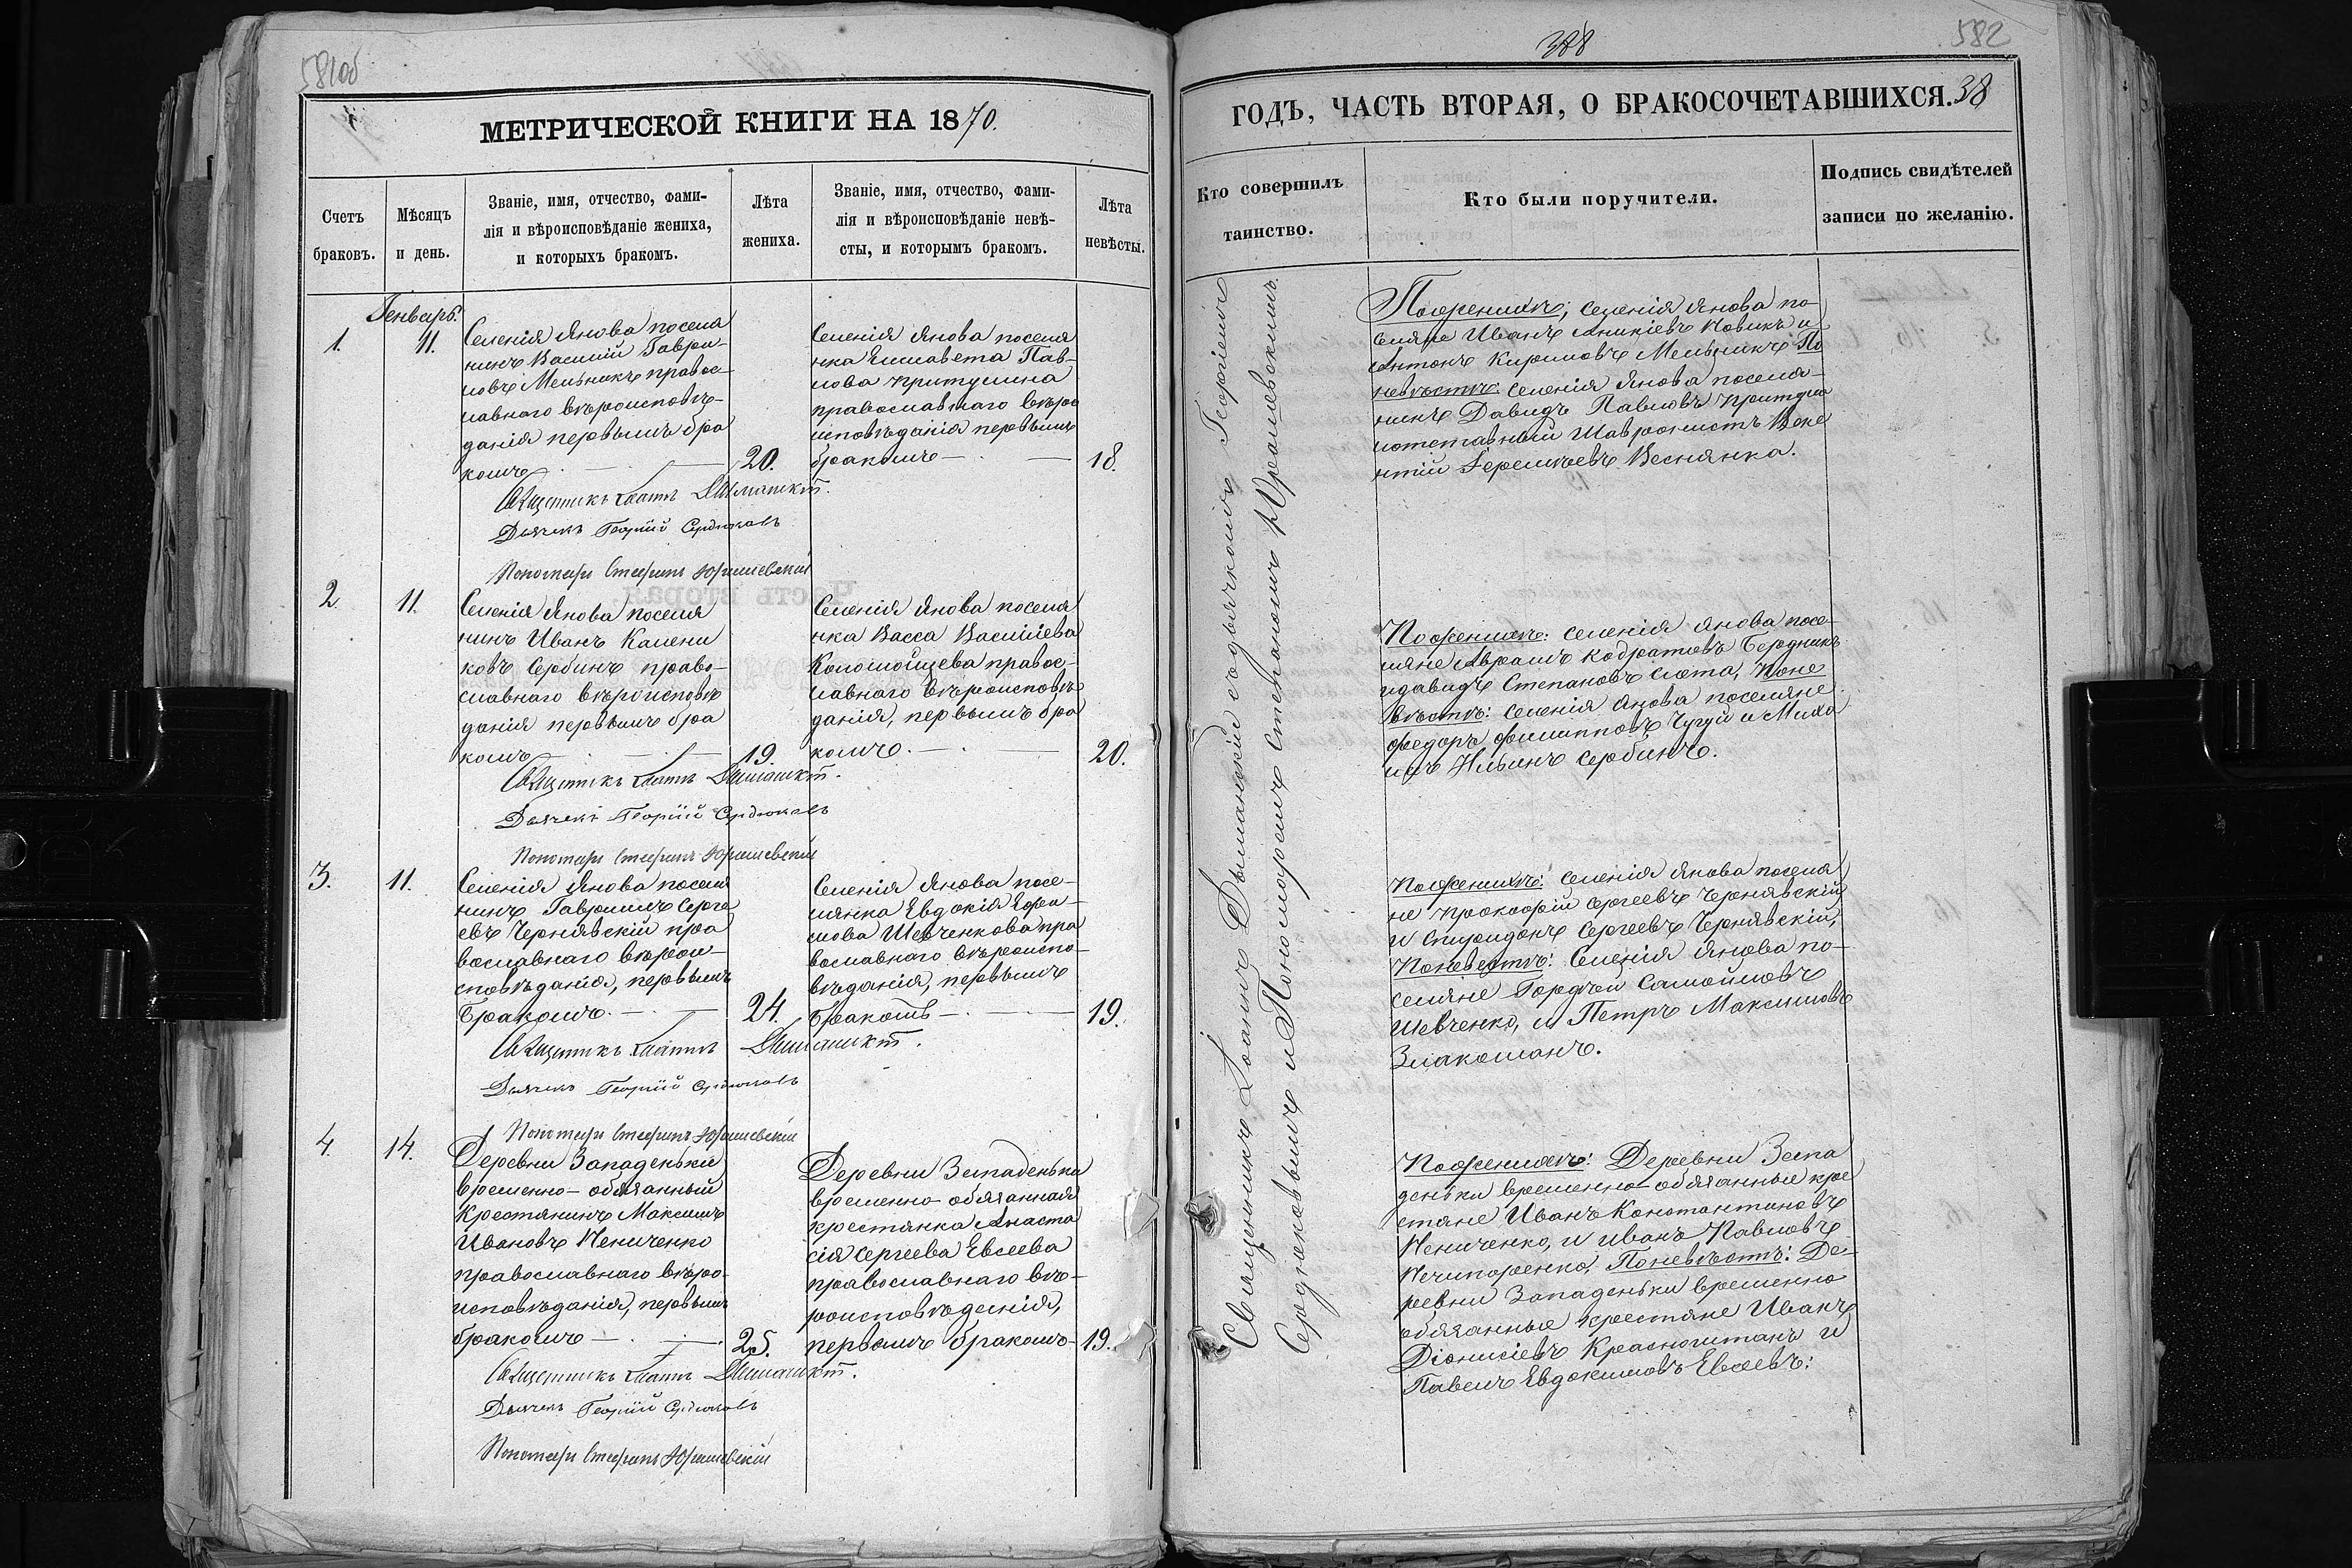 581об
МЕТРИЧЕСКОЙ КНИГИ НА 1870.
Счетъ
браковъ.
Мѣсяцъ
и день.
Званіе, имя, отчество, фами-
лія и вѣроисповѣданіе жениха,
и которыхъ бракомъ.
Лѣта
жениха.
Званіе, имя, отчество, фами-
лія и вѣроисповѣданіе невѣ-
сты, и которымъ бракомъ.
Лѣта
невѣсты.
Генварь.
1.
11.
Селенія Янова поселя
нинъ Василій Гаври-
ловъ Мельникъ правос-
лавнаго вѣроисповѣ-
данія первымъ бра
комъ
20.
Селенія Янова поселя
нка Елисавета Пав-
лова Притулина
православнаго вѣро
исповѣданія первымъ
бракомъ
18.
Священникъ Іоаннъ
Дьячекъ Георгій Сердюковъ
Пономарь Стефанъ Юрашевскій
2.
11.
Селенія Янова поселя
нинъ Иванъ Калени
ковъ Сербинъ право-
славнаго вѣроисповѣ
данія первымъ бра
комъ
19.
Селенія Янова поселя
нка Васса Василіева
Коломойцева правос-
лавнаго вѣроисповѣ
данія, первымъ бра
комъ.
20.
Священникъ Іоаннъ
Дьячекъ Георгій Сердюковъ
Пономарь Стефанъ Юрашевскій
3.
11.
Селенія Янова поселя
нинъ Гавриилъ Серге
евъ Чернявскій пра
вославнаго вѣрои-
сповѣданія, первымъ
бракомъ.
24.
Селенія Янова посе-
лянка Евдокія Ефи-
мова Шевченкова пра
вославнаго вѣроиспо-
вѣданія, первымъ
бракомъ
19.
Священникъ Іоаннъ
Дьячекъ Георгій Сердюковъ
Пономарь Стефанъ Юрашевскій
4.
14.
Деревни Западеньки
временно-обязанный
крестянинъ Максимъ
Ивановъ
православнаго вѣро-
исповѣданія, первымъ
бракомъ
25.
Деревни Западеньки
временно-обязанная
крестянка Анаста
сія Сергеева Евсеева
православнаго вѣ-
роисповѣденія,
первомъ бракомъ
19.
Священникъ Іоаннъ
Дьячекъ Георгій Сердюковъ
Пономарь Стефанъ Юрашевскій
388
582
ГОДЪ, ЧАСТЬ ВТОРАЯ, О БРАКОСОЧЕТАВШИХСЯ. 38
Кто совершилъ
таинство.
Кто были поручители.
Подпись свидѣтелей
записи по желанію.
Священникъ Іоаннъ съ дьячкомъ Георгіемъ
Сердюковымъ и Пономоремъ Степаномъ Юрашевскимъ.
По женихѣ; селенія Янова по-
селяне Иванъ Аникіевъ Новикъ и
Антонъ Кириловъ Мельникъ По
невѣстѣ: селенія Янова поселя-
нинъ Давидъ Павловъ Притула
и отставный
Еремѣевъ Веснянка.
По женихѣ: селенія Янова посе-
ляне Аврамъ Кодратовъ Бердникъ
и давидъ Степановъ Сюта, По не
вѣстѣ: селенія Янова поселяне
федоръ филиповъ Чугуй и Миха
илъ Ильинъ Сербинъ.
По женихѣ: селенія Янова поселя
не Прокофій Сергеевъ Чернявскій,
и Спиридонъ Сергеевъ Чернявскій,
По невестѣ: Селенія Янова по-
селяне Гордѣй Самойловъ
Шевченко, и Петръ Максимовъ
По женихѣ: Деревни Запа
деньки временно-обязанные кре
стяне Иванъ Константиновъ
и иванъ Павловъ
Нечипоренко, По невѣстѣ: Де-
ревни Западеньки временно
обязанные крестяне Иванъ
Діонисіевъ и
Павелъ Евдокимовъ Евсеевъ: